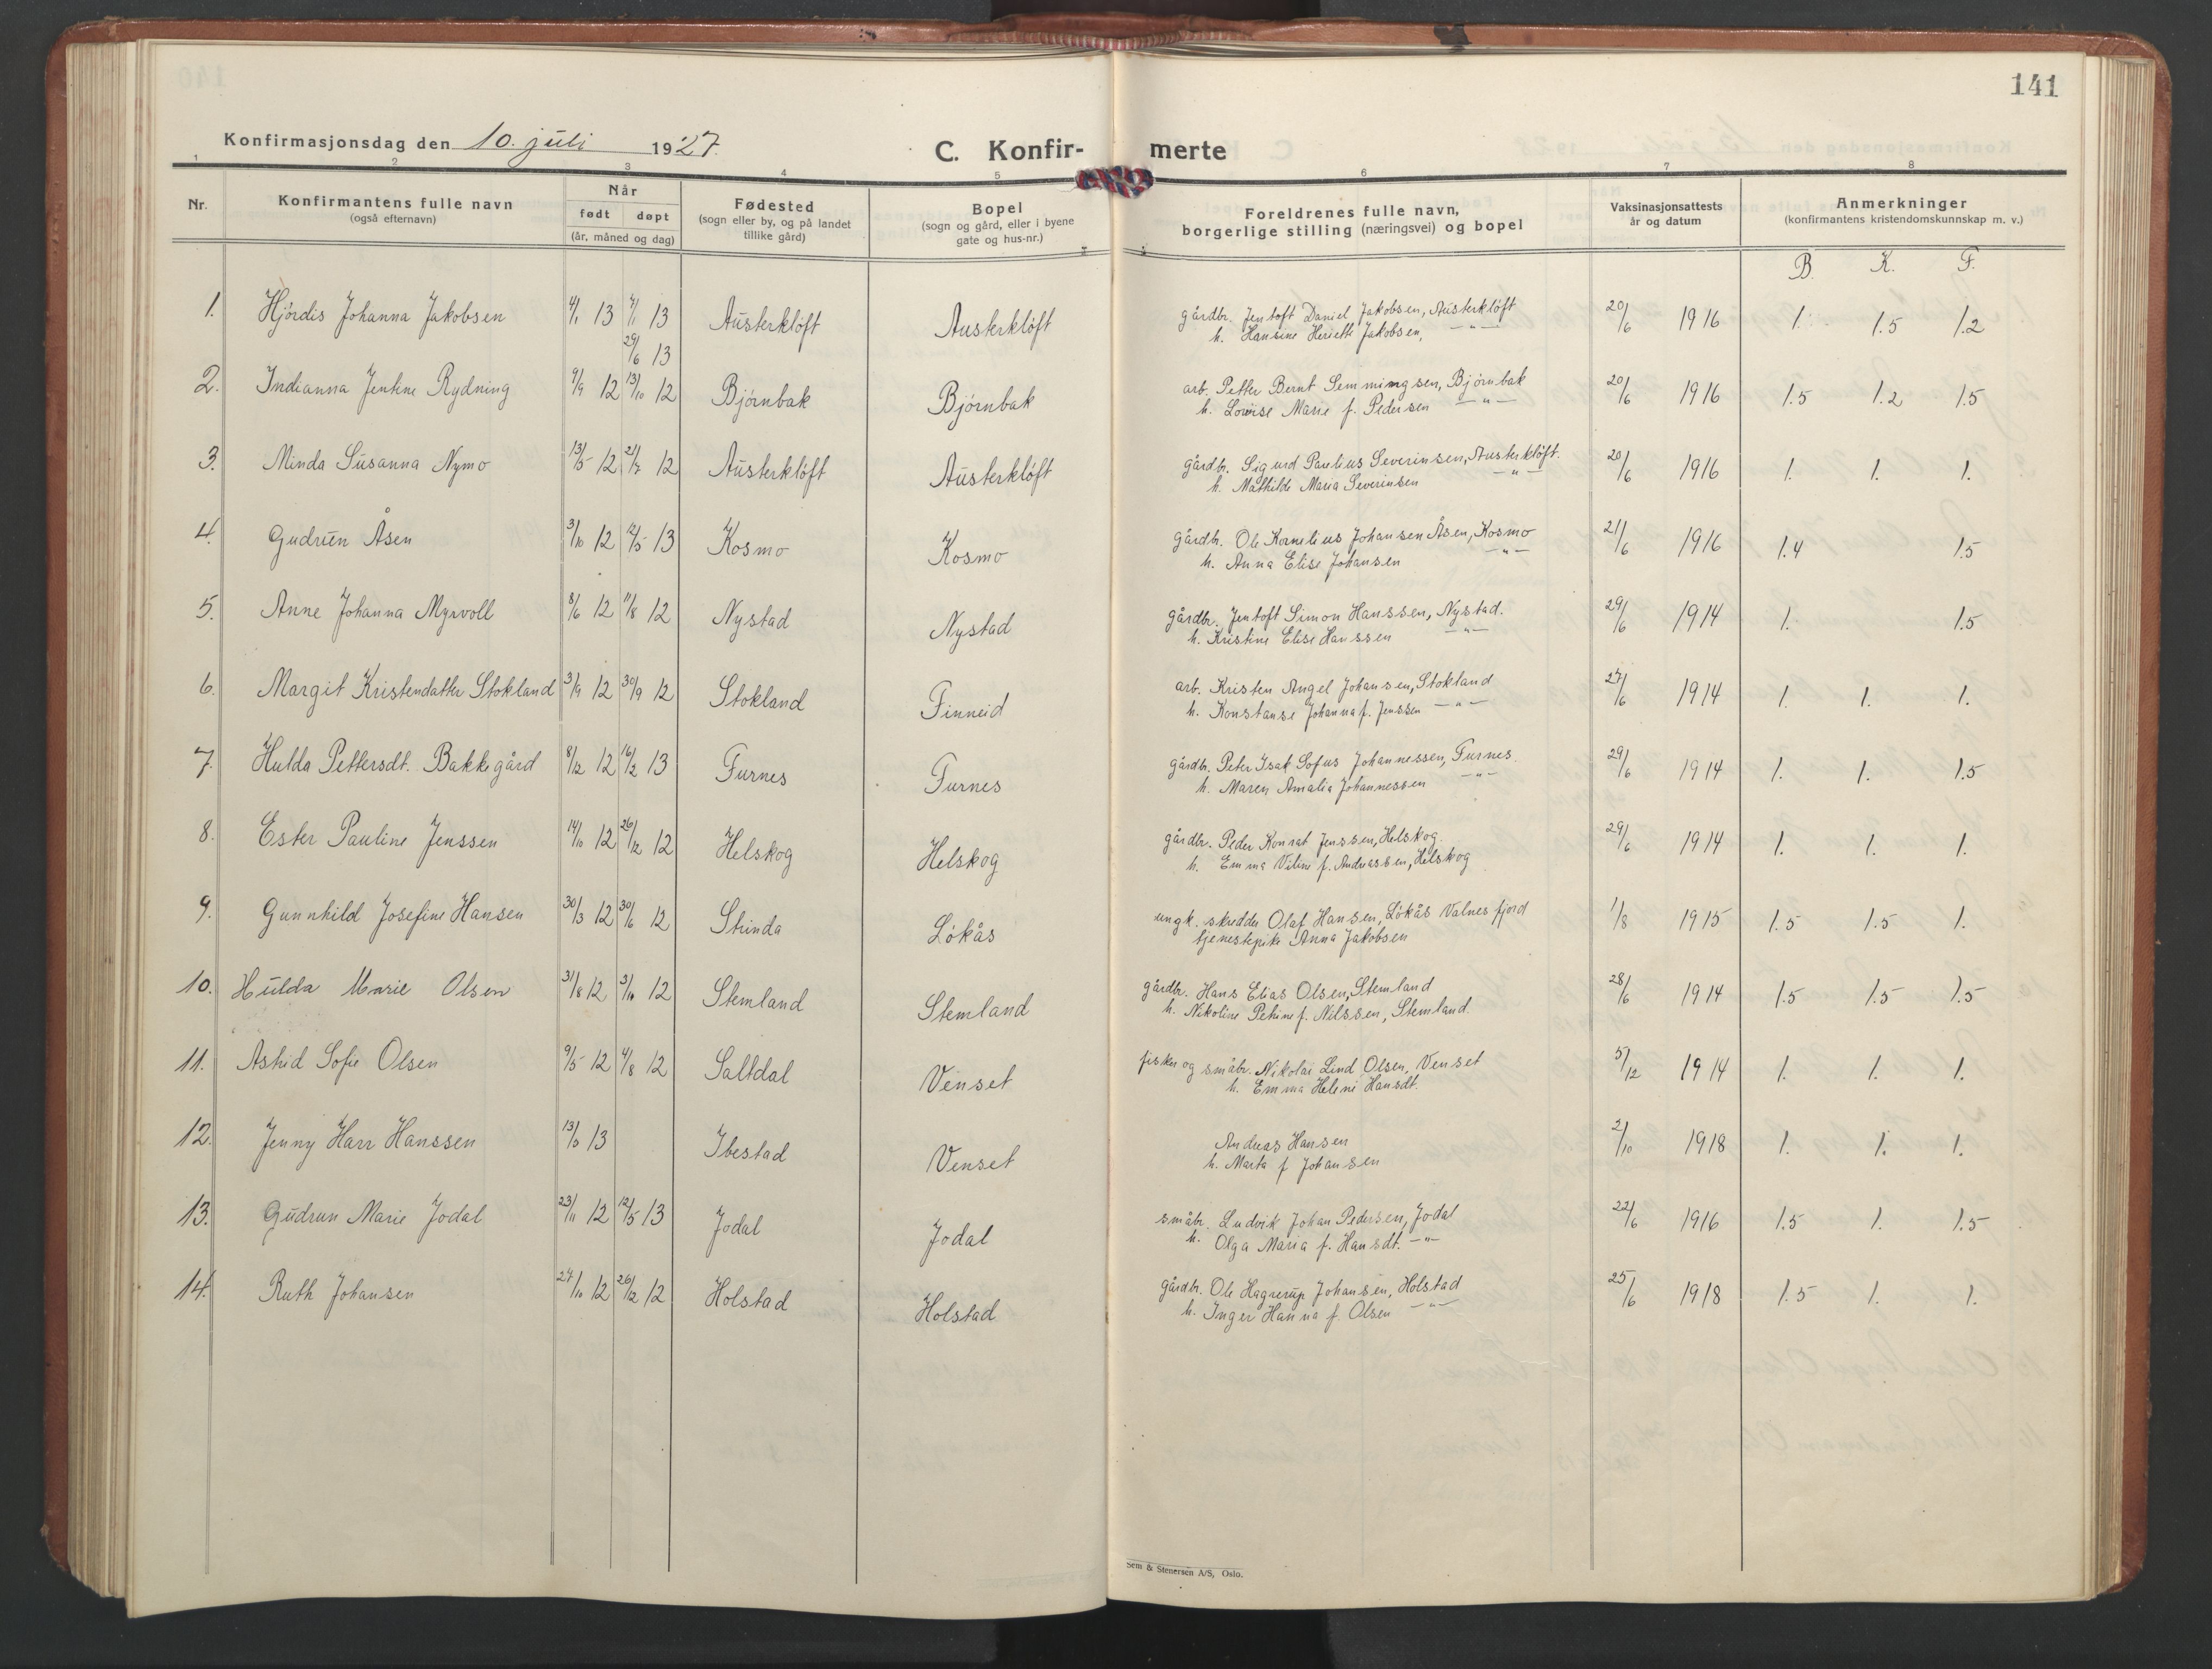 141
Konfirmasjonsdag den 10. juli 1927.
C. Konfir- merte
1 2 3 4 5 6 7 8
Nr. Konfirmantens fulle navn (også efternavn) Når født døpt (år, måned og dag) Fødested (sogn eller by, og på landet tillike gård) Bopel (sogn og gård, eller i byene gate og hus-nr.) Foreldrenes fulle navn, borgerlige stilling (næringsvei) og bopel Vaksinasjonsattests år og datum Anmerkninger (konfirmantens kristendomskunnskap m. v.)
B. K. F.
1. Hjørdis Johanna Jakobsen 4/1 13 4/1 13 Austerkløft Austerkløft gårdbr. Jentoft Daniel Jakobsen, Austerkløft 20/6 1916 1. 1.5 1.2
29/6 13 h. Hansine Heriette Jakobsen, -"-
2. Indianna Jentine Rydning 9/9 12 13/10 12 Bjørnbak Bjørnbak arb. Petter Bernt Semmingsen, Bjørnbak 20/6 1916 1.5 1.2 1.5
h. Lovise Marie f. Pedersen -"-
3. Minda Susanna Nymo 13/5 12 21/7 12 Austerkløft Austerkløft gårdbr. Sigurd Paulius Severinsen, Austerkløft. 20/6 1916 1. 1. 1.
h. Mathilde Maria Severinsen -"-
4. Gudrun Åsen 3/10 12 12/5 13 Kosmo Kosmo gårdbr. Ole Kornelius Johansen Åsen, Kosmo 21/6 1916 1.4 1.5
h. Anna Elise Johansen -"-
5. Anne Johanna Myrvoll 8/6 12 11/8 12 Nystad Nystad gårdbr. Jentoft Simon Hanssen, Nystad. 29/6 1914 1. 1.5
h. Kristine Elise Hanssen -"-
6. Margit Kristendatter Stokland 3/9 12 30/9 12 Stokland Finneid arb. Kristen Angel Johansen, Stokland 27/6 1914 1. 1. 1.
h. Konstanse Johanna f. Jenssen -"-
7. Hulda Pettersdt. Bakkegård 8/12 12 16/2 13 Furnes Furnes gårdbr. Peter Isak Sofus Johannessen, Furnes. 29/6 1914 1. 1. 1.5
h. Maren Amalia Johannessen -"-
8. Ester Pauline Jenssen 14/10 12 26/12 12 Helskog Helskog gårdbr. Peder Konrat Jenssen, Helskog 29/6 1914 1. 1. 1.
h. Emma Viline f. Andreassen, Helskog
9. Gunnhild Josefine Hansen 30/3 12 30/6 12 Strinda Løkås ungk. skredder Olaf Hansen, Løkås Valnesfjord 1/8 1915 1.5 1.5 1.
tjenestepike Anna Jakobsen
10. Hulda Marie Olsen 31/8 12 3/10 12 Stemland Stemland gårdbr. Hans Elias Olsen, Stemland 28/6 1914 1.5 1.5 1.5
h. Nikoline Petrine f. Nilssen, Stemland.
11. Astrid Sofie Olsen 9/5 12 4/8 12 Saltdal Venset fisker og småbr. Nikolai Lind Olsen, Venset 5/12 1914 1. 1. 1.
h. Emma Heleine Hansdt.
12. Jenny Harr Hanssen 13 Ibestad Venset Andreas Hansen 2/10 1918 1. 1. 1.
h. Marta f Johansen
13. Gudrun Marie Jodal 23/11 12 12/5 13 Jodal Jodal småbr. Ludvik Johan Pedersen, Jodal 22/6 1916 1.5 1. 1.5
h. Olga Maria f. Hansdt. -"-
14. Ruth Johansen 27/10 12 26/12 12 Holstad Holstad gårdbr. Ole Hagerup Johansen, Holstad 25/6 1918 1.5 1. 1.
h. Inger Hanna f. Olsen -"-
Sem & Stenersen A/S, Oslo.